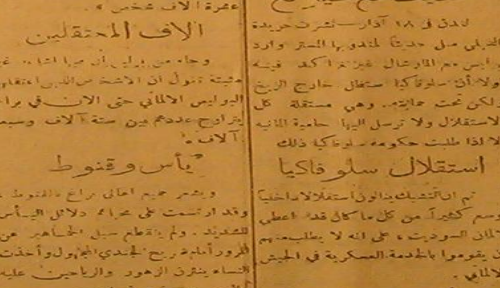 لندن في ١٨ آذار — نشرت جريدة
الديلي ميل حديثا لمندوبها المستر وارد
برايس مع المارشال غيرنغ اكد فيه
ولا أن سلوفاكيا ستظل خارج الريخ
لكن تحت حمايته. وهي مستقلة كل
الاستقلال ولا ترسل اليها حامية المانية
لا اذا طلبت حكومة سلوفاكيا ذلك
استقلال سلوفاكيا
ثم ان التشيك ينالون استقلالا داخليا
سم كثيرا من كل ما كان قد اعطي
لمان السوديت، على انه لا يطلب منهم
ن يقوموا بالخدمة العسكرية في الجيش
لالماني.
عشرة آلاف شخص.
آلاف المعتقلين
وجاء من برلين ان
تقول ان الاشخاص الذين اعتقلهم
البوليس الالماني حتى الآن في براغ
يتراوح عددهم بين ستة آلاف وسبعة
آلاف.
يأس وقنوط
ويشعر جميع اهالي براغ بالقنوط
وقد ارتسمت على دلائل اليأس
الشديد. ولم ينقطع سيل الجماهير عن
المرور أمام ضريح الجندي المجهول وأخذت
النساء ينثرن الزهور والرياحين عليه